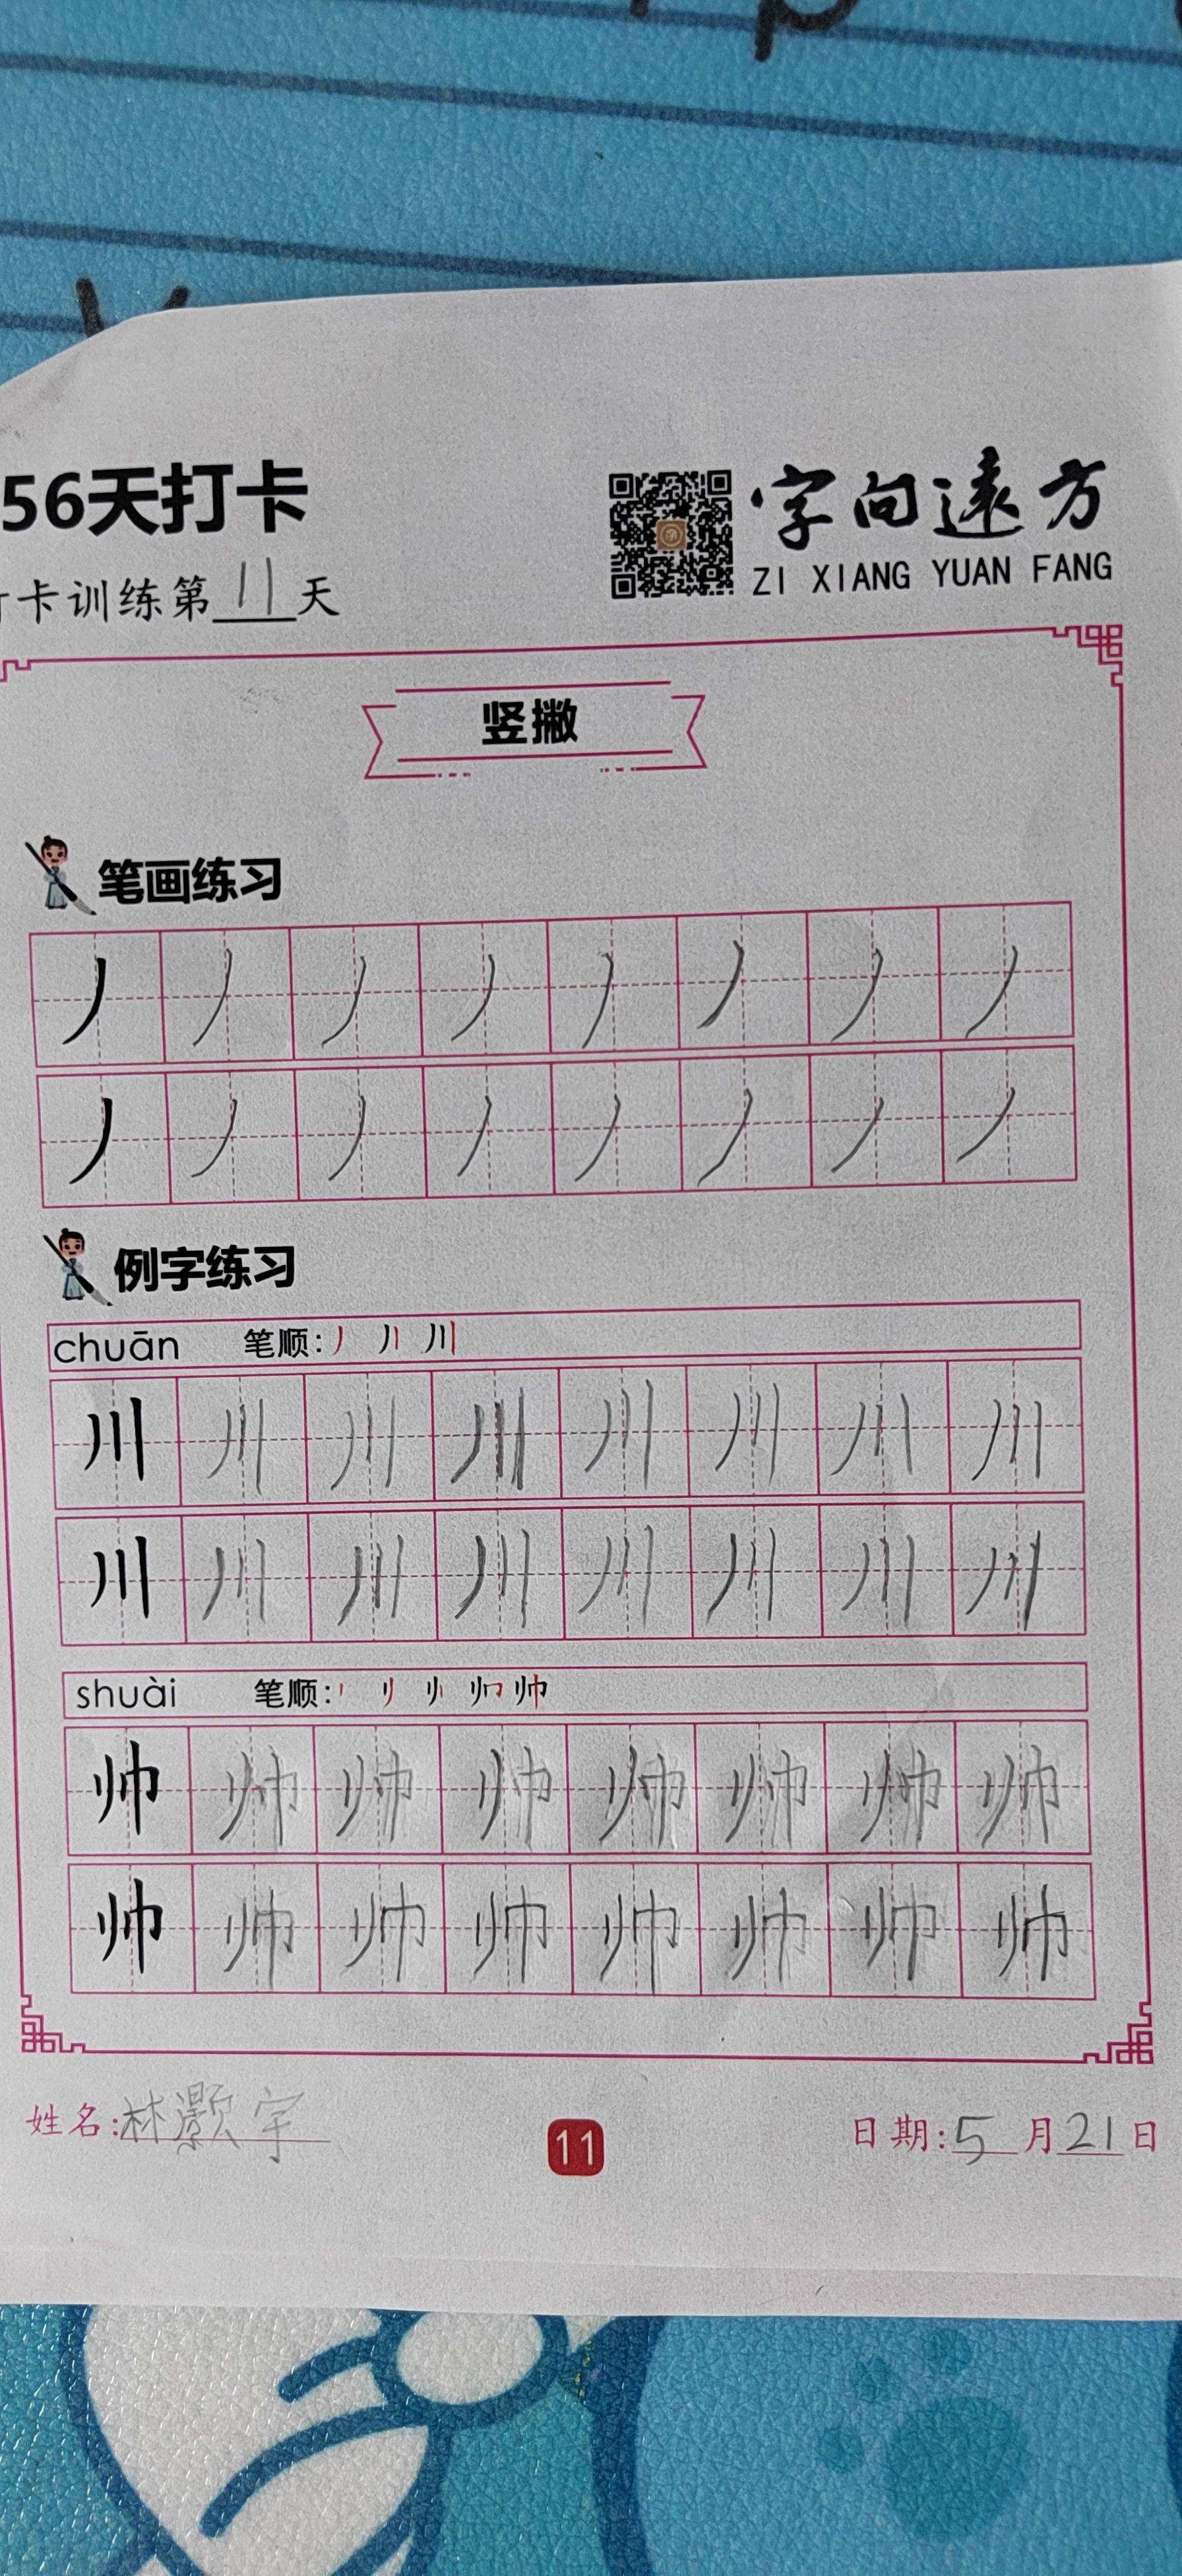 56天打卡
字向远方
ZI XIANG YUAN FANG
打卡训练第11天
竖撇
笔画练习
丿 丿 丿 丿 丿 丿 丿 丿
丿 丿 丿 丿 丿 丿 丿 丿
例字练习
chuān 笔顺:丿 丿丨 川
川 川 川 川 川 川 川 川
川 川 川 川 川 川 川 川
shuài 笔顺: 帅
帅 帅 帅 帅 帅 帅 帅 帅
帅 帅 帅 帅 帅 帅 帅 帅
姓名:林灏宇
11
日期:5月21日